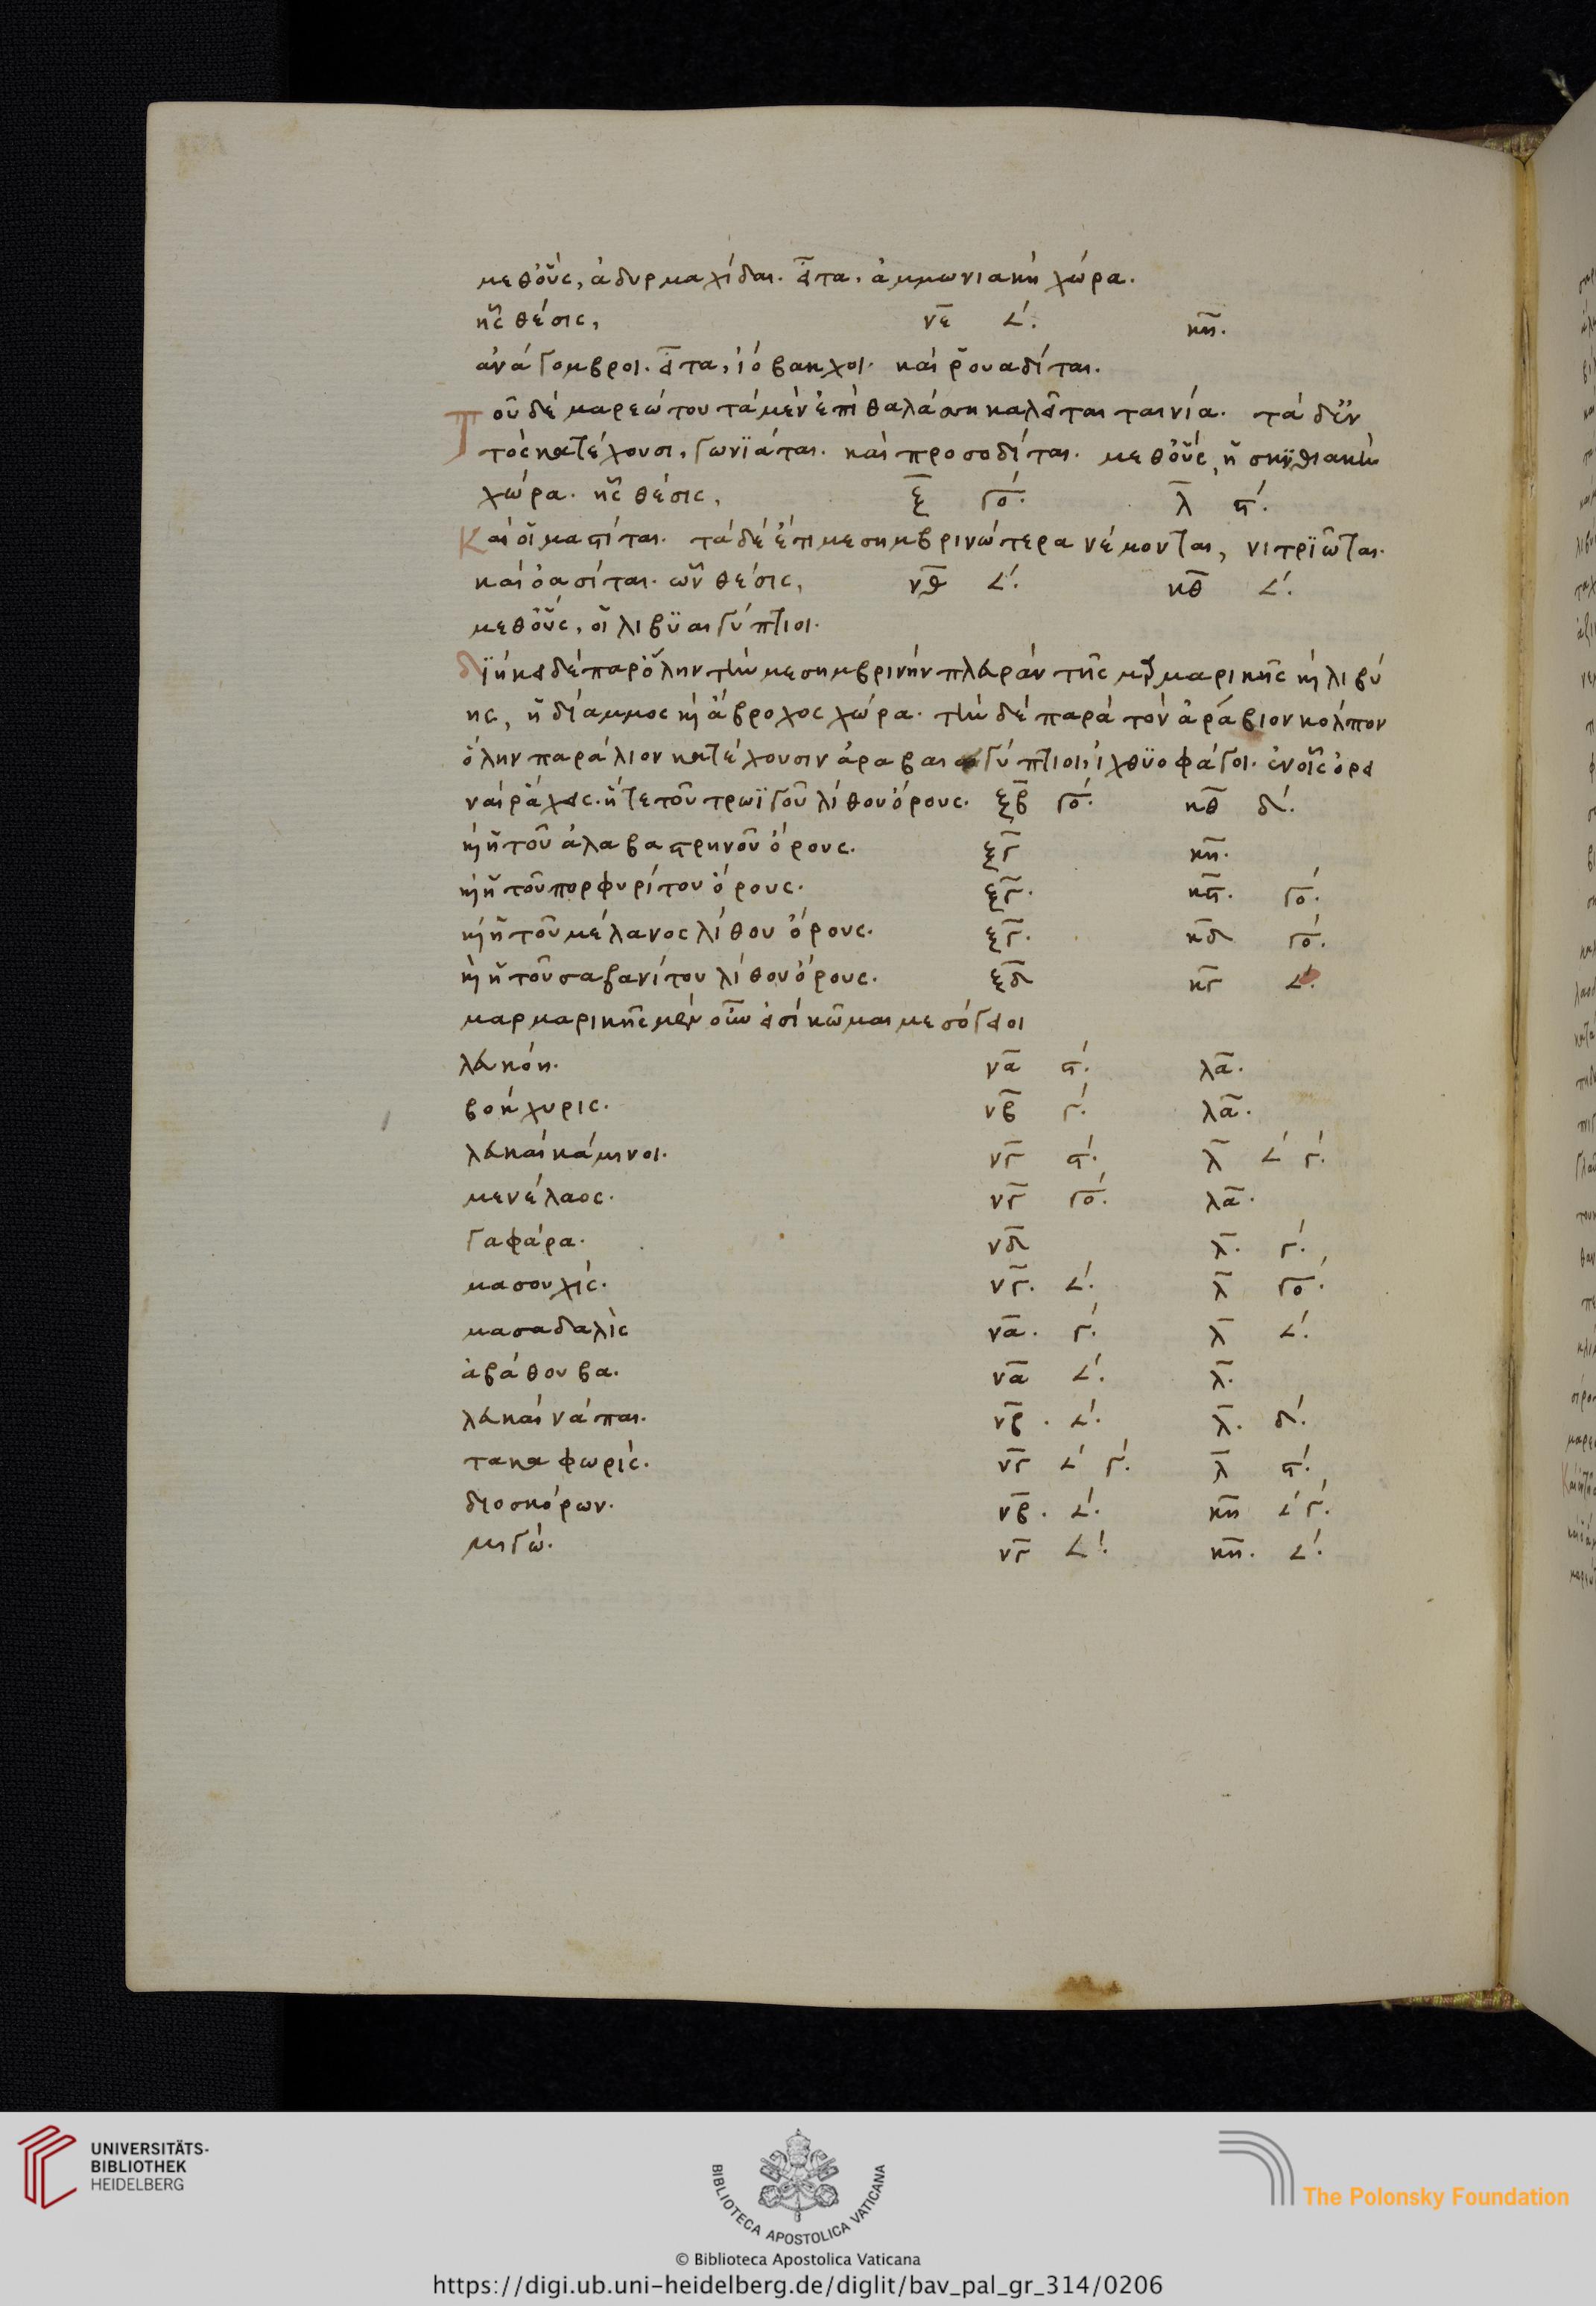 μεθ' οὓς, ἀδυρμαχίδαι. εἶτα, ἀμμωνιακὴ χώρα.
ἧς θέσις, νε 𐅵. κη.
ἀνάγομβροι. εἶτα, ἰόβακχοι. καὶ ῥουαδῖται.
Τοῦ δὲ μαρεώτου τὰ μὲν ἐπὶ θαλάσση καλεῖται ταινία. τὰ δ' ἐν
τὸς κατέχουσι, γωνϊάται. καὶ προσοδίται. μεθ' οὓς, ἡ σκϋθιακὴ
χώρα. ἧς θέσις, ξ γο. λ ϛ.
Καὶ οἱ μαϛίται. τὰ δὲ ἔτι μεσημβρινώτερα νέμονται, νιτρϊῶται.
καὶ ὀασίται. ὧν θέσις, νθ 𐅵. κθ 𐅵.
μεθ' οὓς, οἱ λιβϋαιγύπτιοι.
διήκει δὲ παρ' ὅλην τὴν μεσημβρινὴν πλευρὰν τῆς μαρμαρικῆς καὶ λιβύ
ης, ἡ δίαμμος καὶ ἄβροχος χώρα. τὴν δὲ παρὰ τὸν ἀράβιον κόλπον
ὅλην παράλιον κατέχουσιν ἀραβαιγύπτιοι, ἰχθϋοφάγοι. ἐν οἷς ὀρει
ναὶ ῥάχεις. ἥτε τοῦ τρωϊγοῦ λίθου ὄρους. ξβ γο. κθ δ.
καὶ ἡ τοῦ ἀλαβαϛρηνοῦ ὄρους. ξγ κη.
καὶ ἡ τοῦ πορφυρίτου ὄρους. ξγ. κϛ. γο.
καὶ ἡ τοῦ μέλανος λίθου ὄρους. ξγ. κδ γο.
καὶ ἡ τοῦ σαβανίτου λίθου ὄρους. ξδ κγ 𐅵.
μαρμαρικῆς μὲν οὖν εἰσὶ κῶμαι μεσόγειοι
λευκόη. να ϛ. λα.
βοήχυρις. νβ γ. λα.
λευκαὶ κάμινοι. νγ ϛ. λ 𐅵 γ.
μενέλαος. νγ γο. λα.
γαφάρα. νδ λ. γ.
μασουχίς. νγ. 𐅵. λ γο.
μασαδαλὶς να. γ. λ 𐅵.
ἀβάθουβα. να 𐅵. λ.
λευκαὶ νάπαι. νβ. 𐅵. λ. δ.
τακαφωρίς. νγ 𐅵 γ. λ ϛ.
διοσκόρων. νβ. 𐅵. κη 𐅵 γ.
μιγώ. νγ 𐅵. κη. 𐅵.
UNIVERSITÄTS-
BIBLIOTHEK
HEIDELBERG
BIBLIOTECA APOSTOLICA VATICANA
The Polonsky Foundation
© Biblioteca Apostolica Vaticana
https://digi.ub.uni-heidelberg.de/diglit/bav_pal_gr_314/0206